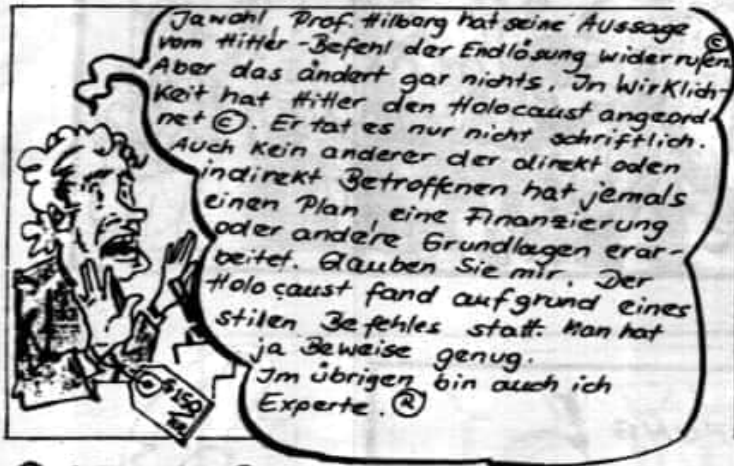 Jawohl, Prof. Hilberg hat seine Aussage
vom Hitler-Befehl der Endlösung widerrufen. ©
Aber das ändert gar nichts. In Wirklich-
keit hat Hitler den Holocaust angeord-
net ©. Er tat es nur nicht schriftlich.
Auch kein anderer der direkt oden
indirekt Betroffenen hat jemals
einen Plan, eine Finanzierung
oder andere Grundlagen erar-
beitet. Glauben Sie mir. Der
Holocaust fand aufgrund eines
stillen Befehles statt. Man hat
ja Beweise genug.
Im übrigen bin auch ich
Experte. ®
$150